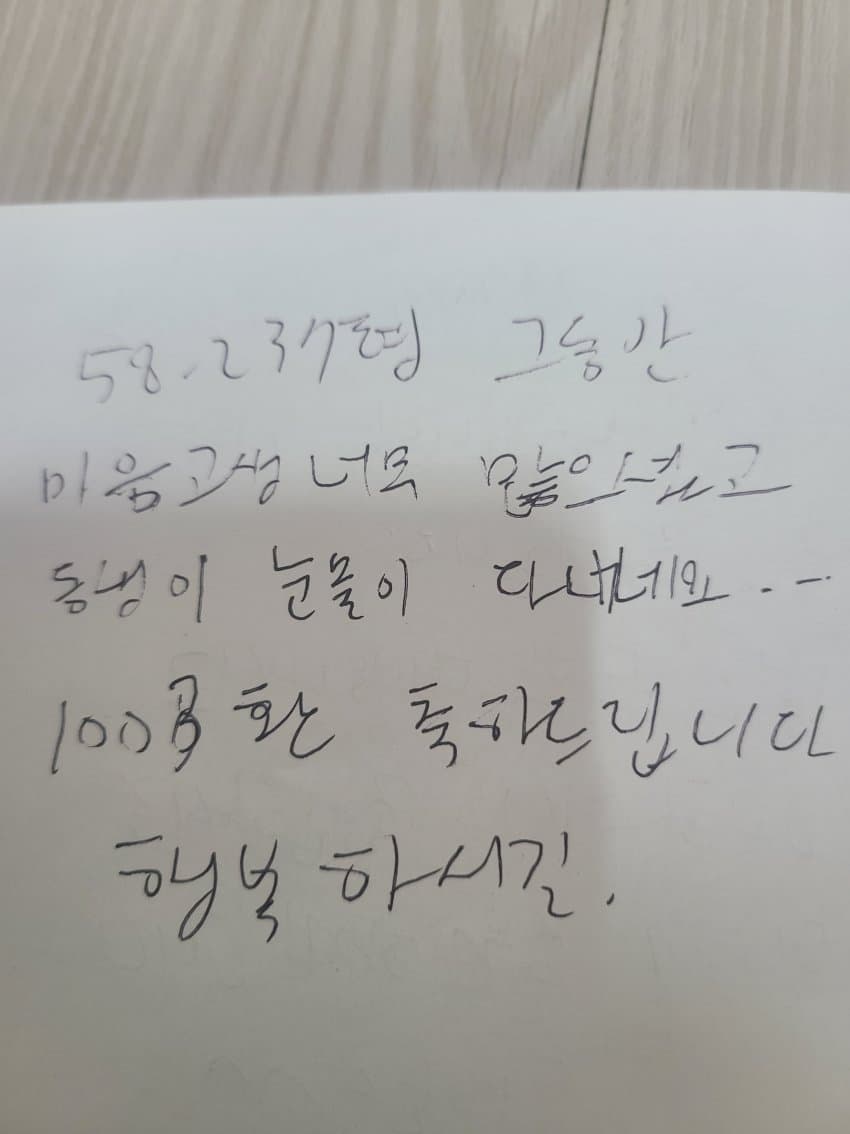 58.237형 그동안
마음고생 너무 많으셨고
동생이 눈물이 다나네요..-
100용환 축하드립니다
행복하시길.